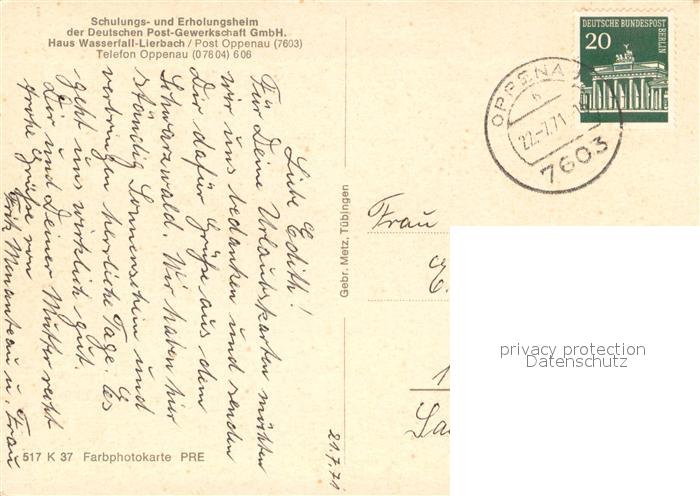 Schulungs- und Erholungsheim
der Deutschen Post-Gewerkschaft GmbH.
Haus Wasserfall-Lierbach / Post Oppenau (7603)
Telefon Oppenau (07604) 606
Liebe Edith!
Für Deine Urlaubskarten möchten
wir uns bedanken und senden
Dir dafür Grüße aus dem
Schwarzwald. Wir haben hier
ständig Sonnenschein und
verbringen herrliche Tage. Es
geht uns wirklich gut.
Dir und Deiner Mutter recht
frohe Grüße von
u. Frau
21.7.71
517 K 37 Farbphotokarte PRE
Gebr. Metz, Tübingen
DEUTSCHE BUNDESPOST
BERLIN
20
OPPENAU
22.-7.71
7603
Frau
E.
1
privacy protection
Datenschutz